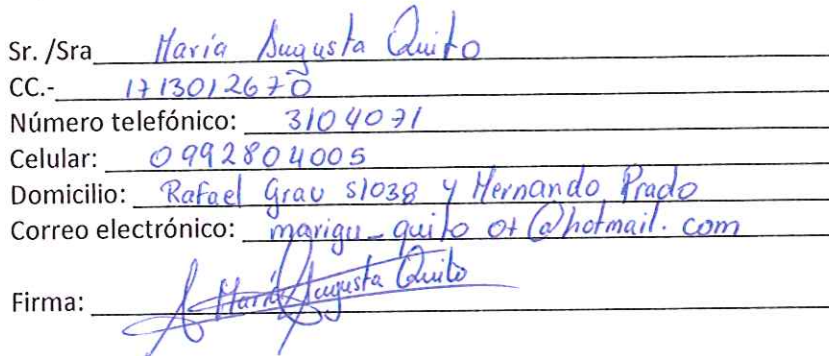 Sr. /Sra María Augusta Quito
CC.- 1713012670
Número telefónico: 3104071
Celular: 0992804005
Domicilio: Rafael Grau S1038 y Hernando Prado
Correo electrónico: marigu_quito 07@hotmail.com
Firma: María Augusta Quito